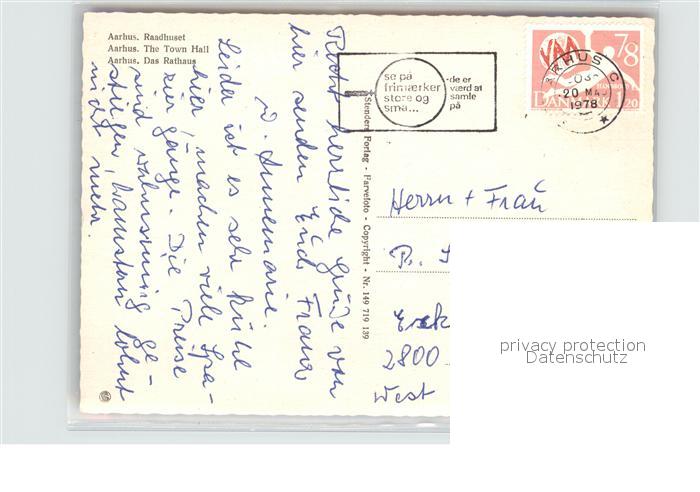 Aarhus. Raadhuset
Aarhus. The Town Hall
Aarhus. Das Rathaus
se på
frimærker
store og
små...
-de er
værd at
samle
på
78
AARHUS C
20 MAJ
1978
DANMARK 120
Stenders Forlag - Farvefoto - Copyright - Nr. 149 719 139
Recht herzliche Grüße von
hier senden Euch Franz
u. Annemarie.
Leider ist es sehr kühl
hier, machen viele Spa-
ziergänge. Die Preise
sind wahnsinnig ge-
stiegen, lohnt
nicht mehr.
Herrn + Frau
2800
West
privacy protection
Datenschutz